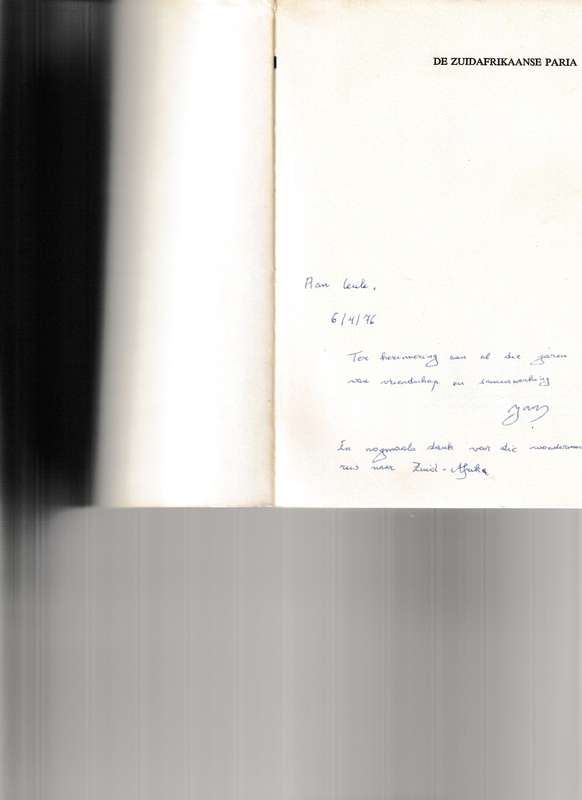 DE ZUIDAFRIKAANSE PARIA
Aan
6/4/76
Ter herinnering aan al die jaren
van vriendschap en samenwerking
En nogmaals dank voor die
reis naar Zuid-Afrika